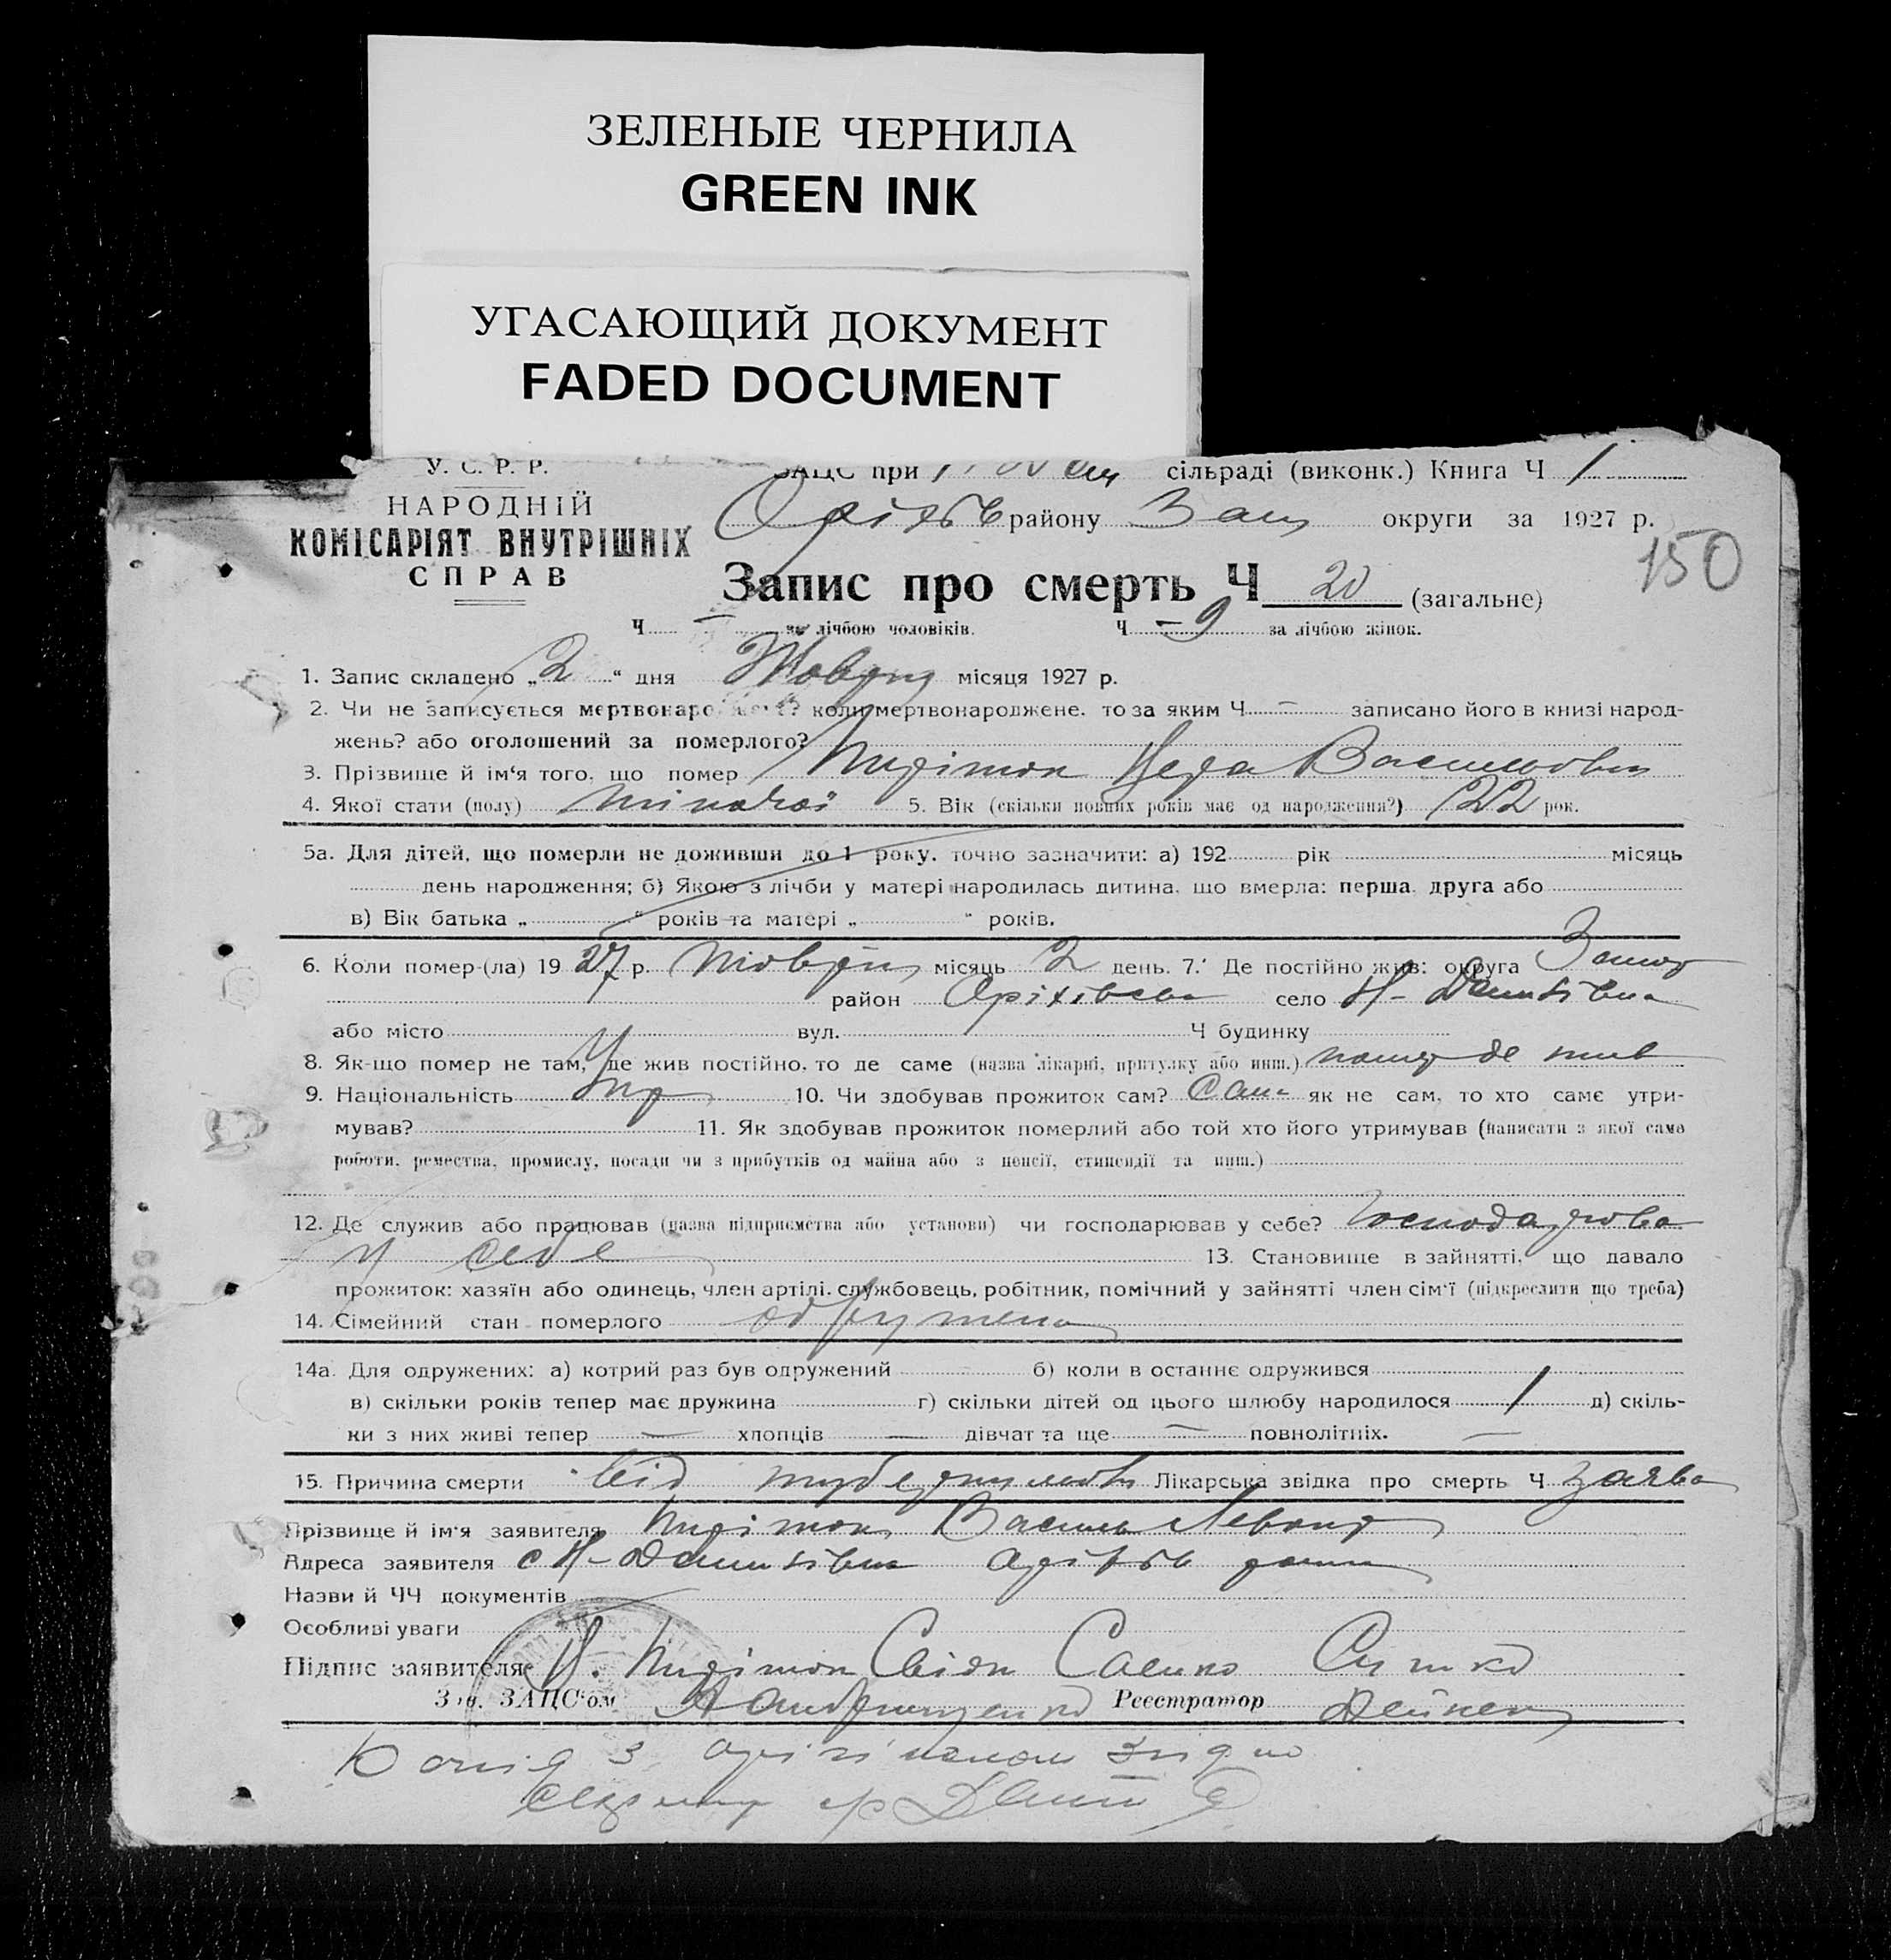 ЗЕЛЕНЫЕ ЧЕРНИЛА
GREEN INK
УГАСАЮЩИЙ ДОКУМЕНТ
FADED DOCUMENT
У. С. Р. Р.
ЗАЦС при сільраді (виконк.) Книга Ч 1
НАРОДНІЙ
Оріхів району Зап округи за 1927 р.
КОМІСАРІЯТ ВНУТРІШНІХ
СПРАВ
150
Запис про смерть Ч 20 (загальне)
Ч — за лічбою чоловіків. Ч — 9 за лічбою жінок.
1. Запис складено „2“ дня Жовтня місяця 1927 р.
2. Чи не записується мертвонароджене? коли мертвонароджене, то за яким Ч — записано його в книзі народ-
жень? або оголошений за померлого?
3. Прізвище й ім‘я того, що помер
4. Якої стати (полу) жіночої 5. Вік (скільки повних років має од народження?) 22 рок.
5а. Для дітей, що померли не доживши до 1 року, точно зазначити: а) 192 рік місяць
день народження; б) Якою з лічби у матері народилась дитина, що вмерла: перша, друга або
в) Вік батька „ “ років та матері „ “ років.
6. Коли помер-(ла) 1927 р. Жовтня місяць 2 день. 7. Де постійно жив: округа Запор
район Оріхівськ село Н-Данилівка
або місто вул. Ч будинку
8. Як-що помер не там, де жив постійно, то де саме (назва лікарні, притулку або инш.) помер де жив
9. Національність Укр 10. Чи здобував прожиток сам? Сам як не сам, то хто саме утри-
мував? 11. Як здобував прожиток померлий або той хто його утримував (написати з якої само
роботи, ремества, промислу, посади чи з прибутків од майна або з пенсії, стипендії та инш.)
12. Де служив або працював (назва підприємства або установи) чи господарював у себе? Господарюва
у себе 13. Становище в зайнятті, що давало
прожиток: хазяїн або одинець, член артілі, службовець, робітник, помічний у зайнятті член сім‘ї (підкреслити що треба)
14. Сімейний стан померлого одружена
14а. Для одружених: а) котрий раз був одружений б) коли в останнє одружився
в) скільки років тепер має дружина г) скільки дітей од цього шлюбу народилося 1 д) скіль-
ки з них живі тепер — хлопців — дівчат та ще — повнолітніх. —
15. Причина смерти від туберкульоза Лікарська звідка про смерть Ч заява
Прізвище й ім‘я заявителя Василь
Адреса заявителя с Н-Данилівка Оріхів район
Назви й ЧЧ документів
Особливі уваги
Підпис заявителя
Зав. ЗАЦС‘ом Реєстратор
Копія з оригіналом згідно